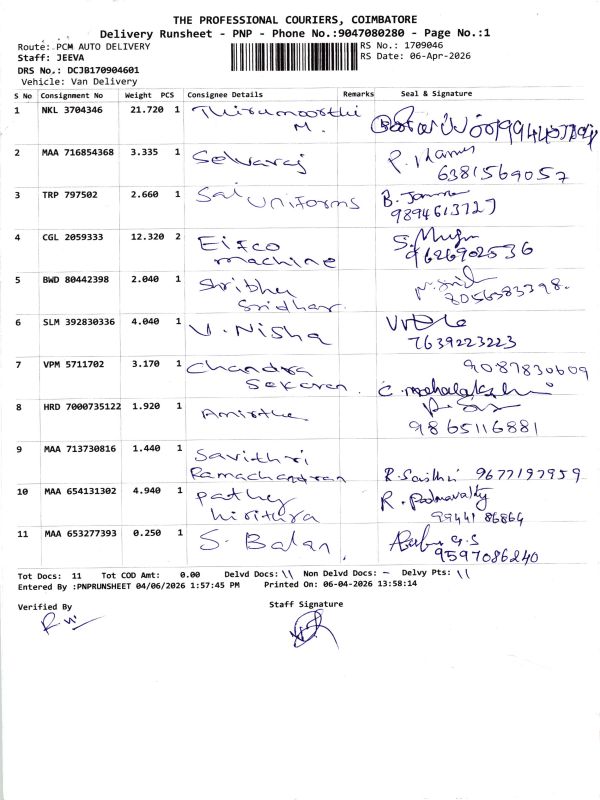 THE PROFESSIONAL COURIERS, COIMBATORE
Delivery Runsheet - PNP - Phone No.:9047080280 - Page No.:1
Route: PCM AUTO DELIVERY
RS No.: 1709046
Staff: JEEVA
RS Date: 06-Apr-2026
DRS No.: DCJB170904601
Vehicle: Van Delivery
S No Consignment No Weight PCS Consignee Details Remarks Seal & Signature
1 NKL 3704346 21.720 1 Thirumoorthi
M.
2 MAA 716854368 3.335 1 Selvaraj
6381569057
3 TRP 797502 2.660 1 Sai Uniforms
9894613727
4 CGL 2059333 12.320 2 Eifco
machine 9626902536
5 BWD 80442398 2.040 1 Sribhu
Sridhar. 8056383398.
6 SLM 392830336 4.040 1 V. Nisha
7639223223
7 VPM 5711702 3.170 1 Chandra 9087830609
Sekaran. C. mahalakshmi
8 HRD 7000735122 1.920 1 Amirtha
9865116881
9 MAA 713730816 1.440 1 Savithri
Ramachandran R. Savithri 9677197959
10 MAA 654131302 4.940 1 Pathy R. Padmavathy
hirithra 99441 86864
11 MAA 653277393 0.250 1 S. Balan. Babu G.S
9597086240
Tot Docs: 11 Tot COD Amt: 0.00 Delvd Docs: 11 Non Delvd Docs: - Delvy Pts: 11
Entered By :PNPRUNSHEET 04/06/2026 1:57:45 PM Printed On: 06-04-2026 13:58:14
Verified By
Staff Signature